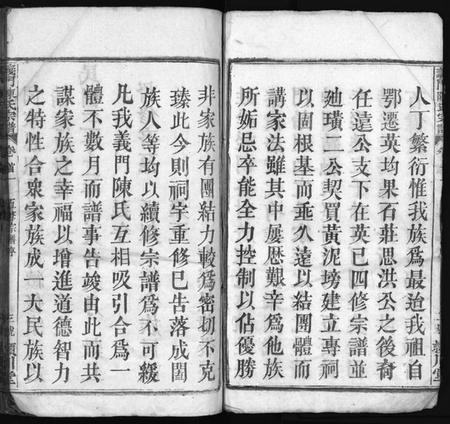 人丁繁衍惟我族爲最迨我祖自
鄂遷英均果石莊思洪公之後裔
任遠公支下在英已四修宗譜並
廸璜二公契買黃泥塝建立專祠
以固根基而垂久遠以結團體而
講家法雖其中屢歷艱辛爲他族
所妬忌卒能全力控制以佔優勝
非家族有團結力較爲密切不克
臻此今則祠宇重修已告落成闔
族人等均以續修宗譜爲不可緩
凡我義門陳氏互相吸引合爲一
體不數月而譜事告竣由此而共
謀家族之幸福以增進道德智力
之特性合衆家族成一大民族以
義門陳氏宗譜 卷首